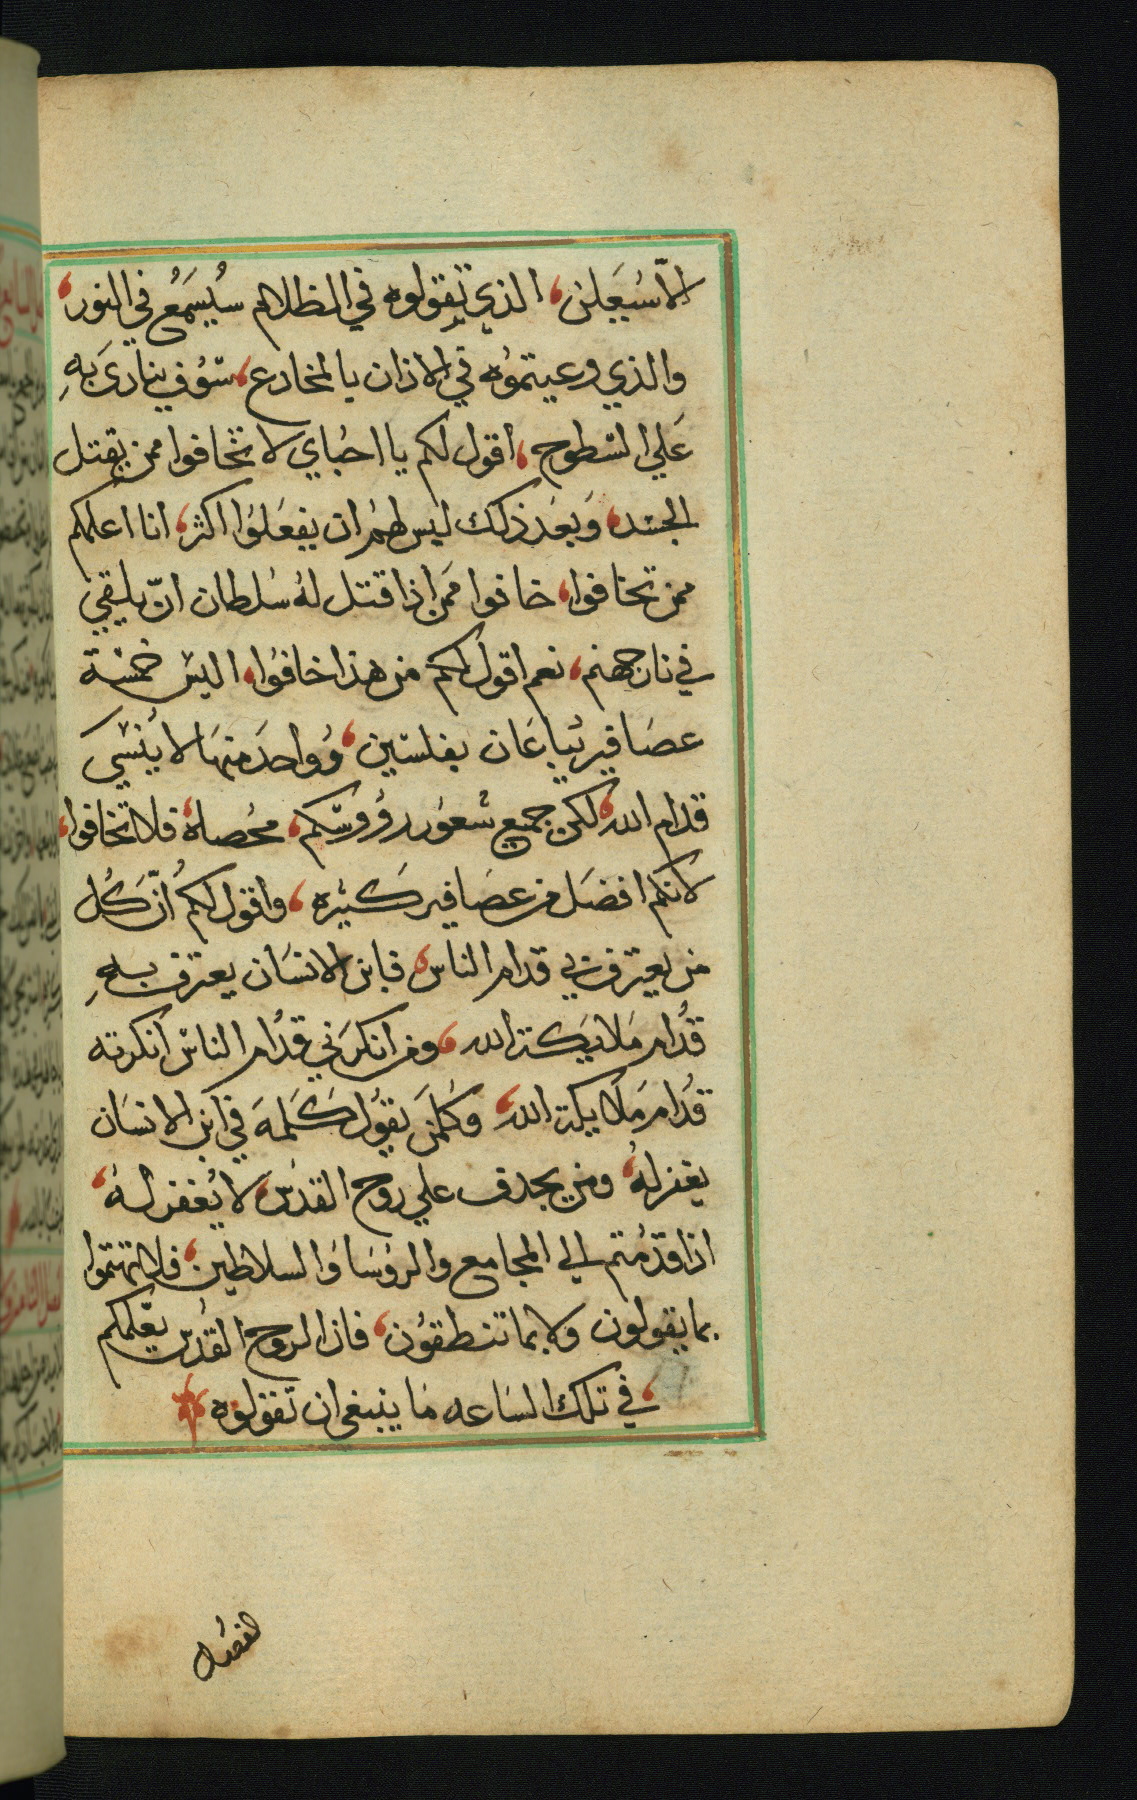 الّا سَيُعلن، الذي تقولوه في الظلام سيُسمَعُ في النور،
والذي وعيتموُه في الاذان يا لمخادع، سَوُف ينادىَ بَهِ
عَلي السّطوح، اقول لكم يا احبُاي لا تخافوا ممن يقتل
الجسَد، وَبعَد ذلك ليس لهمُ ان يفعَلوُا اكثر، انا اعلمكم
ممن تخافوا، خافوا مَمن اذا قتل لهُ سُلطان انّ يلقي
في نار جهنم، نعم اقول لكم من هذا خافوُا، اليسَ خمسَة
عصَافير تُباعَان بفلسَين، وُواحدَ منهَا لا يُنسَي
قدام الله، لكن جميع شعوُر روُوسَكم، محُصاة، فلا تخافوا،
لانكم افضَل من عصَافير كَثيره، واقول لكمُ انّ كَل
من يعترف بي قدام الناس، فابن الانسَان يعترف بهِ
قدُام مَلايَكة الله، ومن انكرَني قدُام الناس انكرته
قدُام مَلايكة الله، وكُلمن يقوُل كَلمهَ في ابن الانسَان
يغفر لهُ، ومن يجدف علي روح القدسَ، لا يُغفر لهُ،
اذا قدمُتم الي المجامع والروُسَا وُالسلاطين، فلا تهتموا
بما يقولون ولا بما تنطقوُن، فان الروح القُدس يعّلمكم
في تلك السَاعه مَا ينبغي ان تقولوه
الفصُل